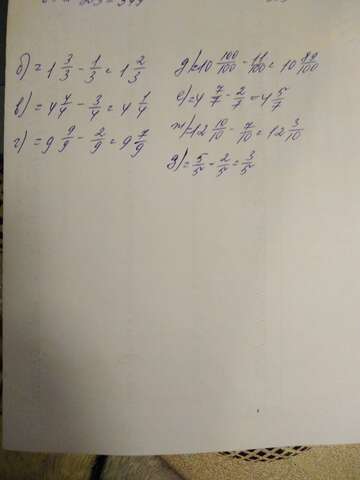 б) = 1 3/3 - 1/3 = 1 2/3
в) = 4 4/4 - 3/4 = 4 1/4
г) = 9 9/9 - 2/9 = 9 7/9
д) = 10 100/100 - 11/100 = 10 89/100
е) = 4 7/7 - 2/7 = 4 5/7
ж) = 12 10/10 - 7/10 = 12 3/10
з) = 5/5 - 2/5 = 3/5